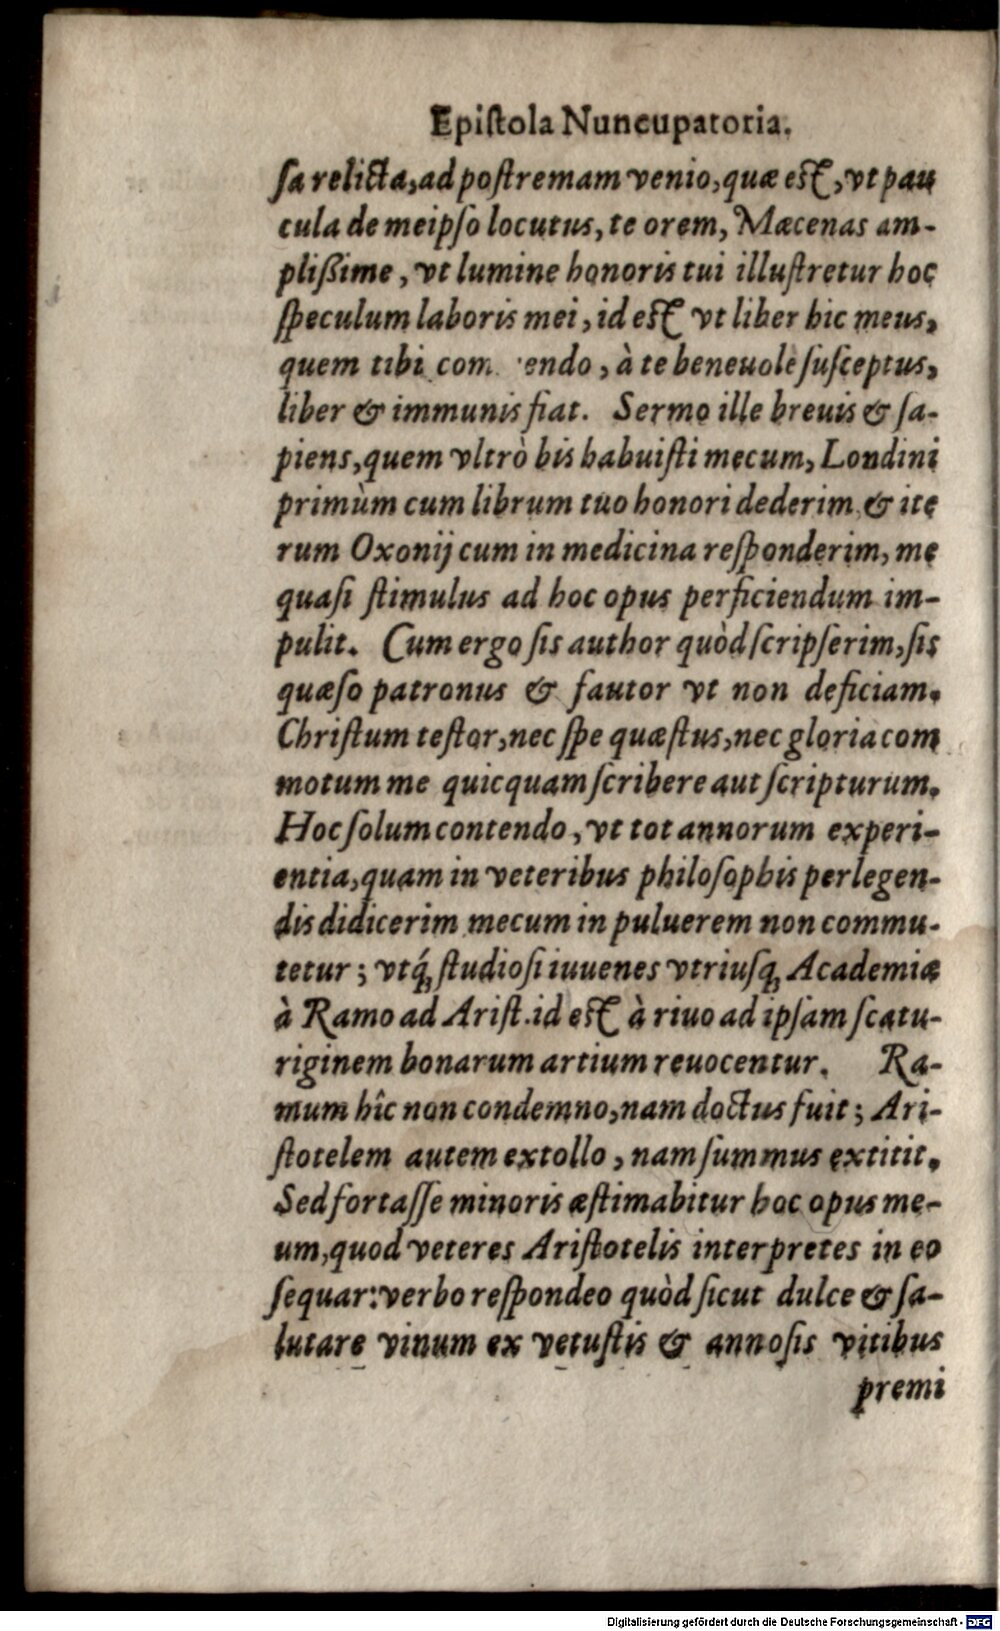 Epiſtola Nuncupatoria.
ſa relicta, ad poſtremam venio, quæ eſt, vt pau
cula de meipſo locutus, te orem, Mæcenas am-
plißime, vt lumine honoris tui illuſtretur hoc
ſpeculum laboris mei, id eſt vt liber hic meus,
quem tibi com endo, à te beneuole ſuſceptus,
liber & immunis fiat. Sermo ille breuis & ſa-
piens, quem vltrò bis habuiſti mecum, Londini
primùm cum librum tuo honori dederim & ite
rum Oxonij cum in medicina reſponderim, me
quaſi ſtimulus ad hoc opus perficiendum im-
pulit. Cum ergo ſis author quòd ſcripſerim, ſis
quæſo patronus & fautor vt non deficiam.
Chriſtum teſtor, nec ſpe quæſtus, nec gloria com
motum me quicquam ſcribere aut ſcripturum.
Hoc ſolum contendo, vt tot annorum experi-
entia, quam in veteribus philoſophis perlegen-
dis didicerim mecum in puluerem non commu-
tetur; vtq́; ſtudioſi iuuenes vtriuſq; Academiæ
à Ramo ad Ariſt. id eſt à riuo ad ipſam ſcatu-
riginem bonarum artium reuocentur. Ra-
mum hîc non condemno, nam doctus fuit; Ari-
ſtotelem autem extollo, nam ſummus extitit.
Sed fortaſſe minoris æſtimabitur hoc opus me-
um, quod veteres Ariſtotelis interpretes in eo
ſequar: verbo reſpondeo quòd ſicut dulce & ſa-
lutare vinum ex vetuſtis & annoſis vitibus
premi
Digitalisierung gefördert durch die Deutsche Forschungsgemeinschaft - DFG